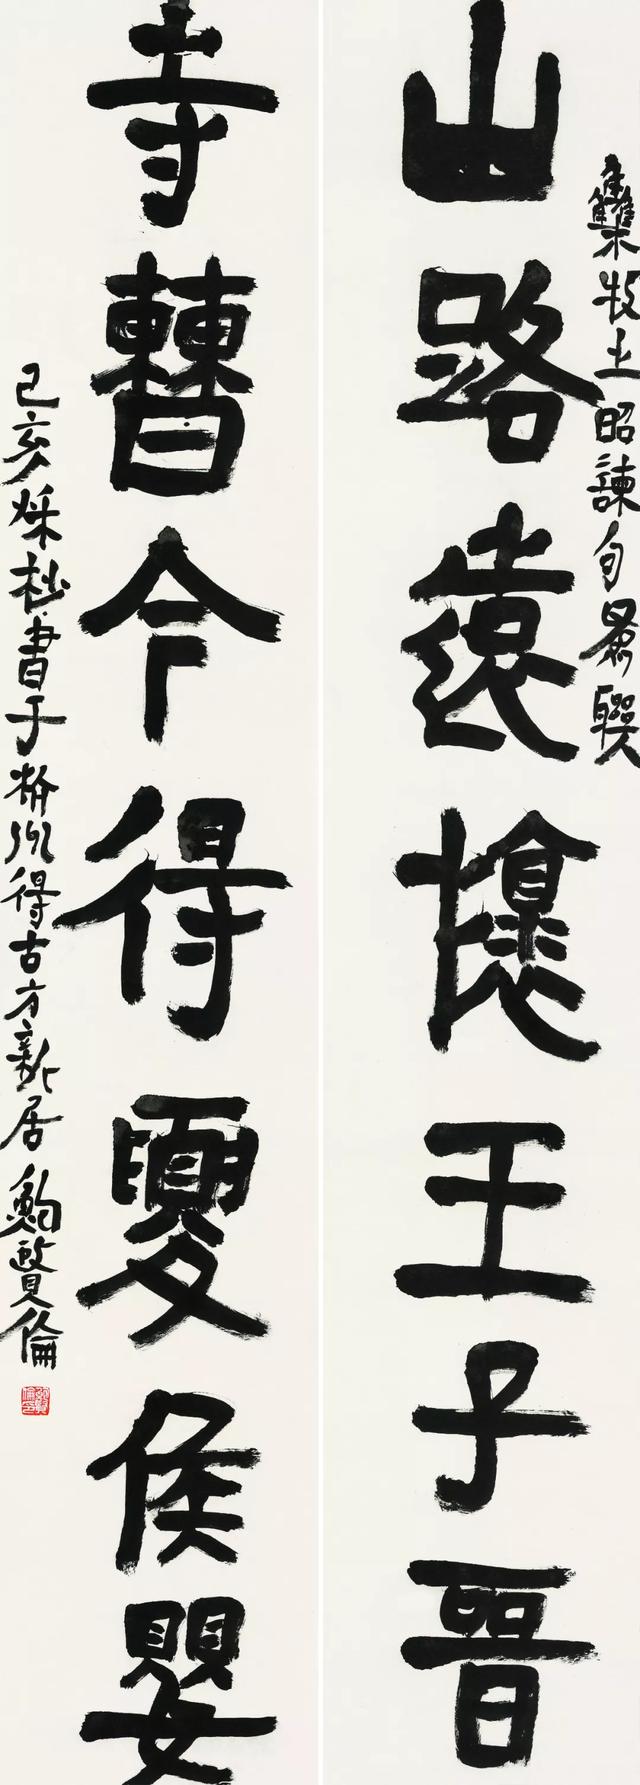 集牧之昭諫句為聯
山路遠懷王子晉
寺曹今得夏侯嬰
己亥秋杪書于州得古方新居鮑賢倫